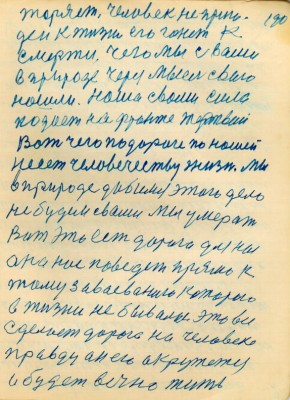 теряет, человек не приго- 190
ден к жизни его гонет к
смерти, чего мы с вами
в природе через мысел свою
нашли. Наша с вами сила
падает на фронте жертвой
Вот чего по дороге по нашей
несет человечеству жизн. Мы
в природе добилис этого дело
не будем с вами мы умерат
Вот это ест дорога для нас
она нас поведет прямо к
тому завоеванию которого
в жизни не бывало это все
сделает дорога на человека
правду он его окружежу
и будет вечно жить